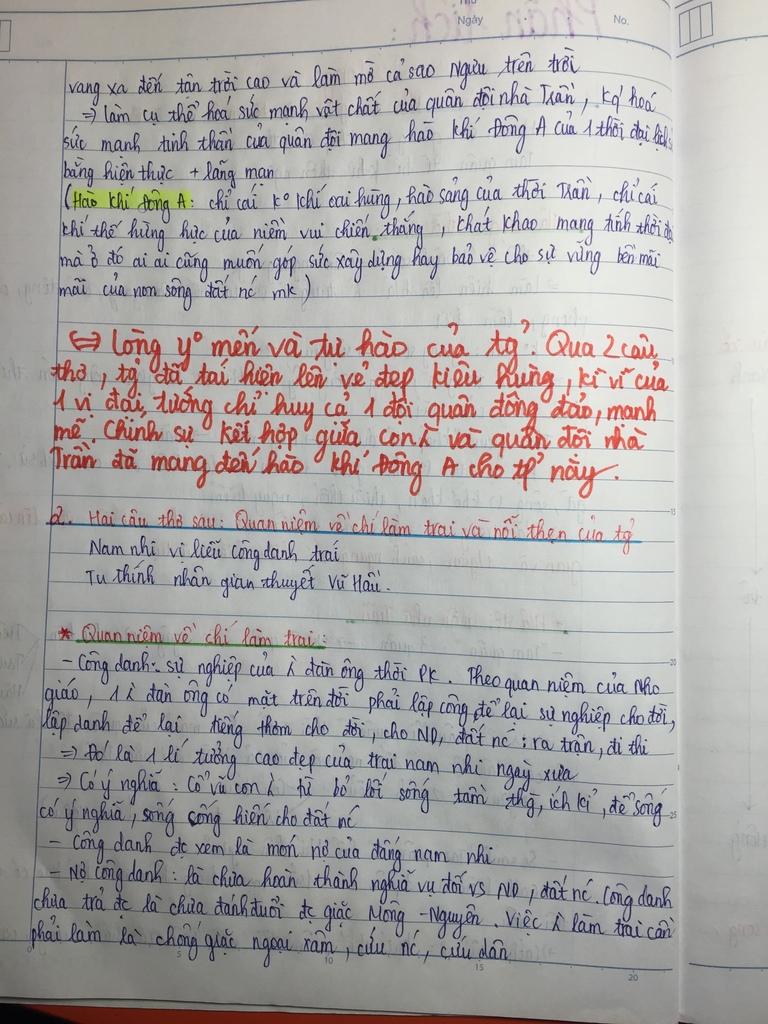 Thứ
Ngày
No.
vang xa đến tận trời cao và làm mờ cả sao Ngưu trên trời
⇒ làm cụ thể hoá sức mạnh vật chất của quân đội nhà Trần, kq' hoá
sức mạnh tinh thần của quân đội mang hào khí Đông A của 1 thời đại lịch sử
bằng hiện thực + lãng mạn
(Hào khí Đông A: chỉ cái k° khí oai hùng, hào sảng của thời Trần, chỉ cái
khí thế hừng hực của niềm vui chiến thắng, khát khao mang tính thời đại
mà ở đó ai ai cũng muốn góp sức xây dựng hay bảo vệ cho sự vững bền mãi
mãi của non sông đất nc mk)
⇔ Lòng y° mến và tự hào của tg?. Qua 2 câu
thơ, tg? đã tái hiện lên vẻ đẹp kiêu hùng, kì vĩ của
1 vị đại tướng chỉ huy cả 1 đội quân đông đảo, mạnh
mẽ. Chính sự kết hợp giữa con λ và quân đội nhà
Trần đã mang đến hào khí Đông A cho tp? này.
2. Hai câu thơ sau: Quan niệm về chí làm trai và nỗi thẹn của tg?
Nam nhi vị liễu công danh trái
Tu thính nhân gian thuyết Vũ Hầu.
* Quan niệm về chí làm trai:
- Công danh: sự nghiệp của λ đàn ông thời PK. Theo quan niệm của Nho
giáo, 1 λ đàn ông có mặt trên đời phải lập công, để lại sự nghiệp cho đời,
lập danh để lại tiếng thơm cho đời, cho ND, đất nc: ra trận, đi thi
⇒ Đó là 1 lí tưởng cao đẹp của trai nam nhi ngày xưa
⇒ Có ý nghĩa: Cổ vũ con λ từ bỏ lối sống tầm thg, ích kỉ, để sống
có ý nghĩa, sống cống hiến cho đất nc
- Công danh đc xem là món nợ của đấng nam nhi
- Nợ công danh: là chưa hoàn thành nghĩa vụ đối vs ND, đất nc. Công danh
chưa trả đc là chưa đánh đuổi đc giặc Mông - Nguyên. Việc λ làm trai cần
phải làm là chống giặc ngoại xâm, cứu nc, cứu dân